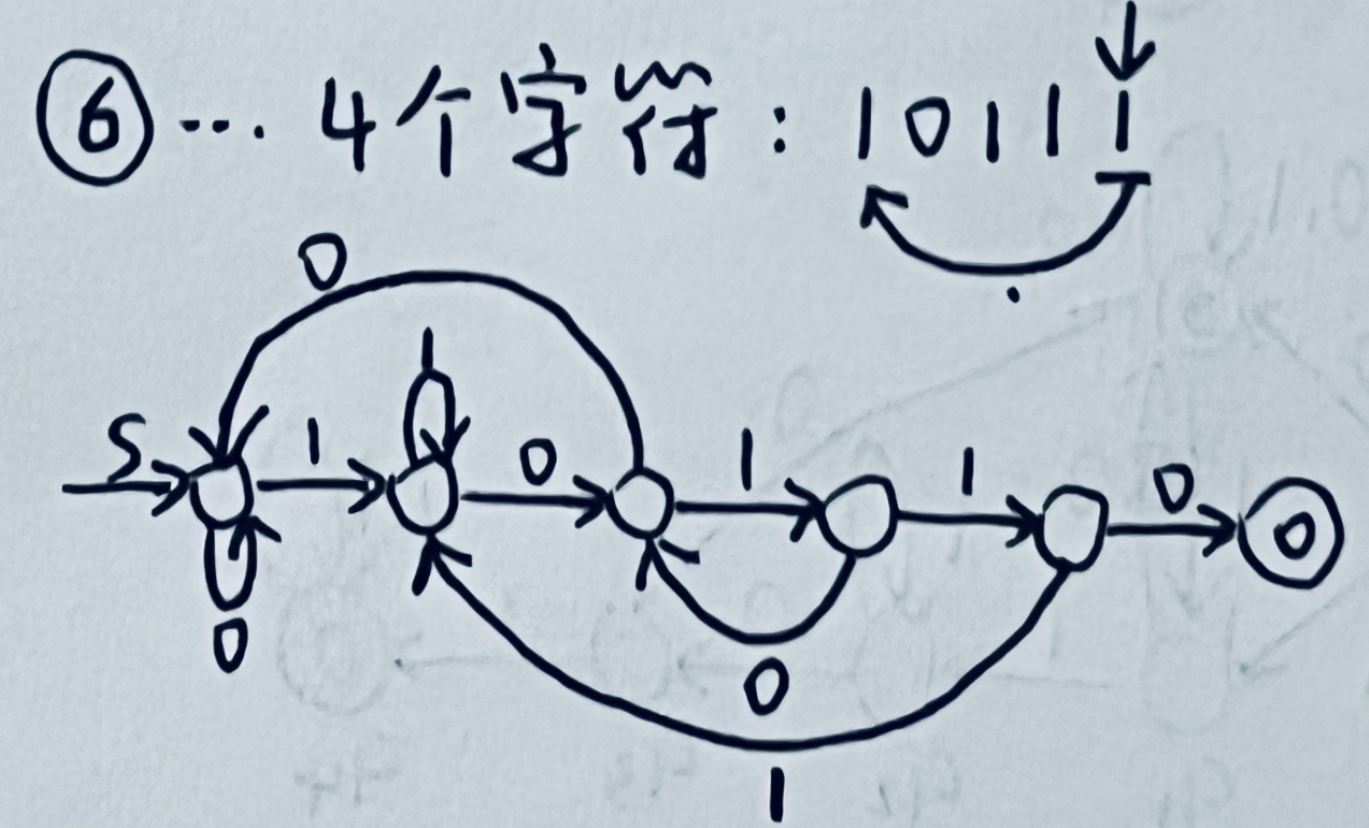 ⑥… 4个字符：10111
0
1
S 1 0 1 1 0 0
0
0
1